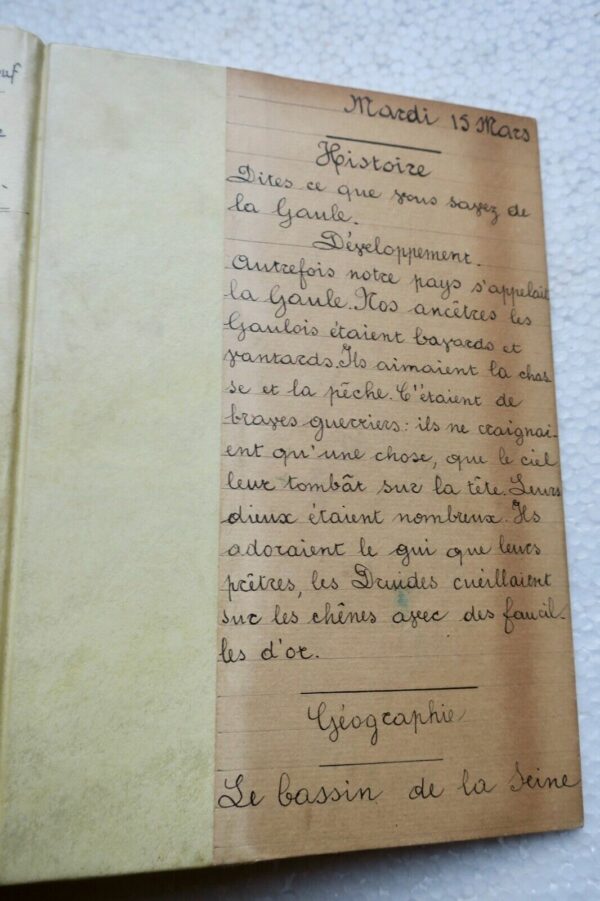 Mardi 15 Mars
Histoire
Dites ce que vous savez de
la Gaule.
Développement.
Autrefois notre pays s'appelait
la Gaule. Nos ancêtres les
Gaulois étaient bavards et
vantards. Ils aimaient la chas
se et la pêche. C'étaient de
braves guerriers : ils ne craignai-
ent qu'une chose, que le ciel
leur tombât sur la tête. Leurs
dieux étaient nombreux. Ils
adoraient le gui que leurs
prêtres, les Druides cueillaient
sur les chênes avec des faucil-
les d'or.
Géographie
Le bassin de la Seine